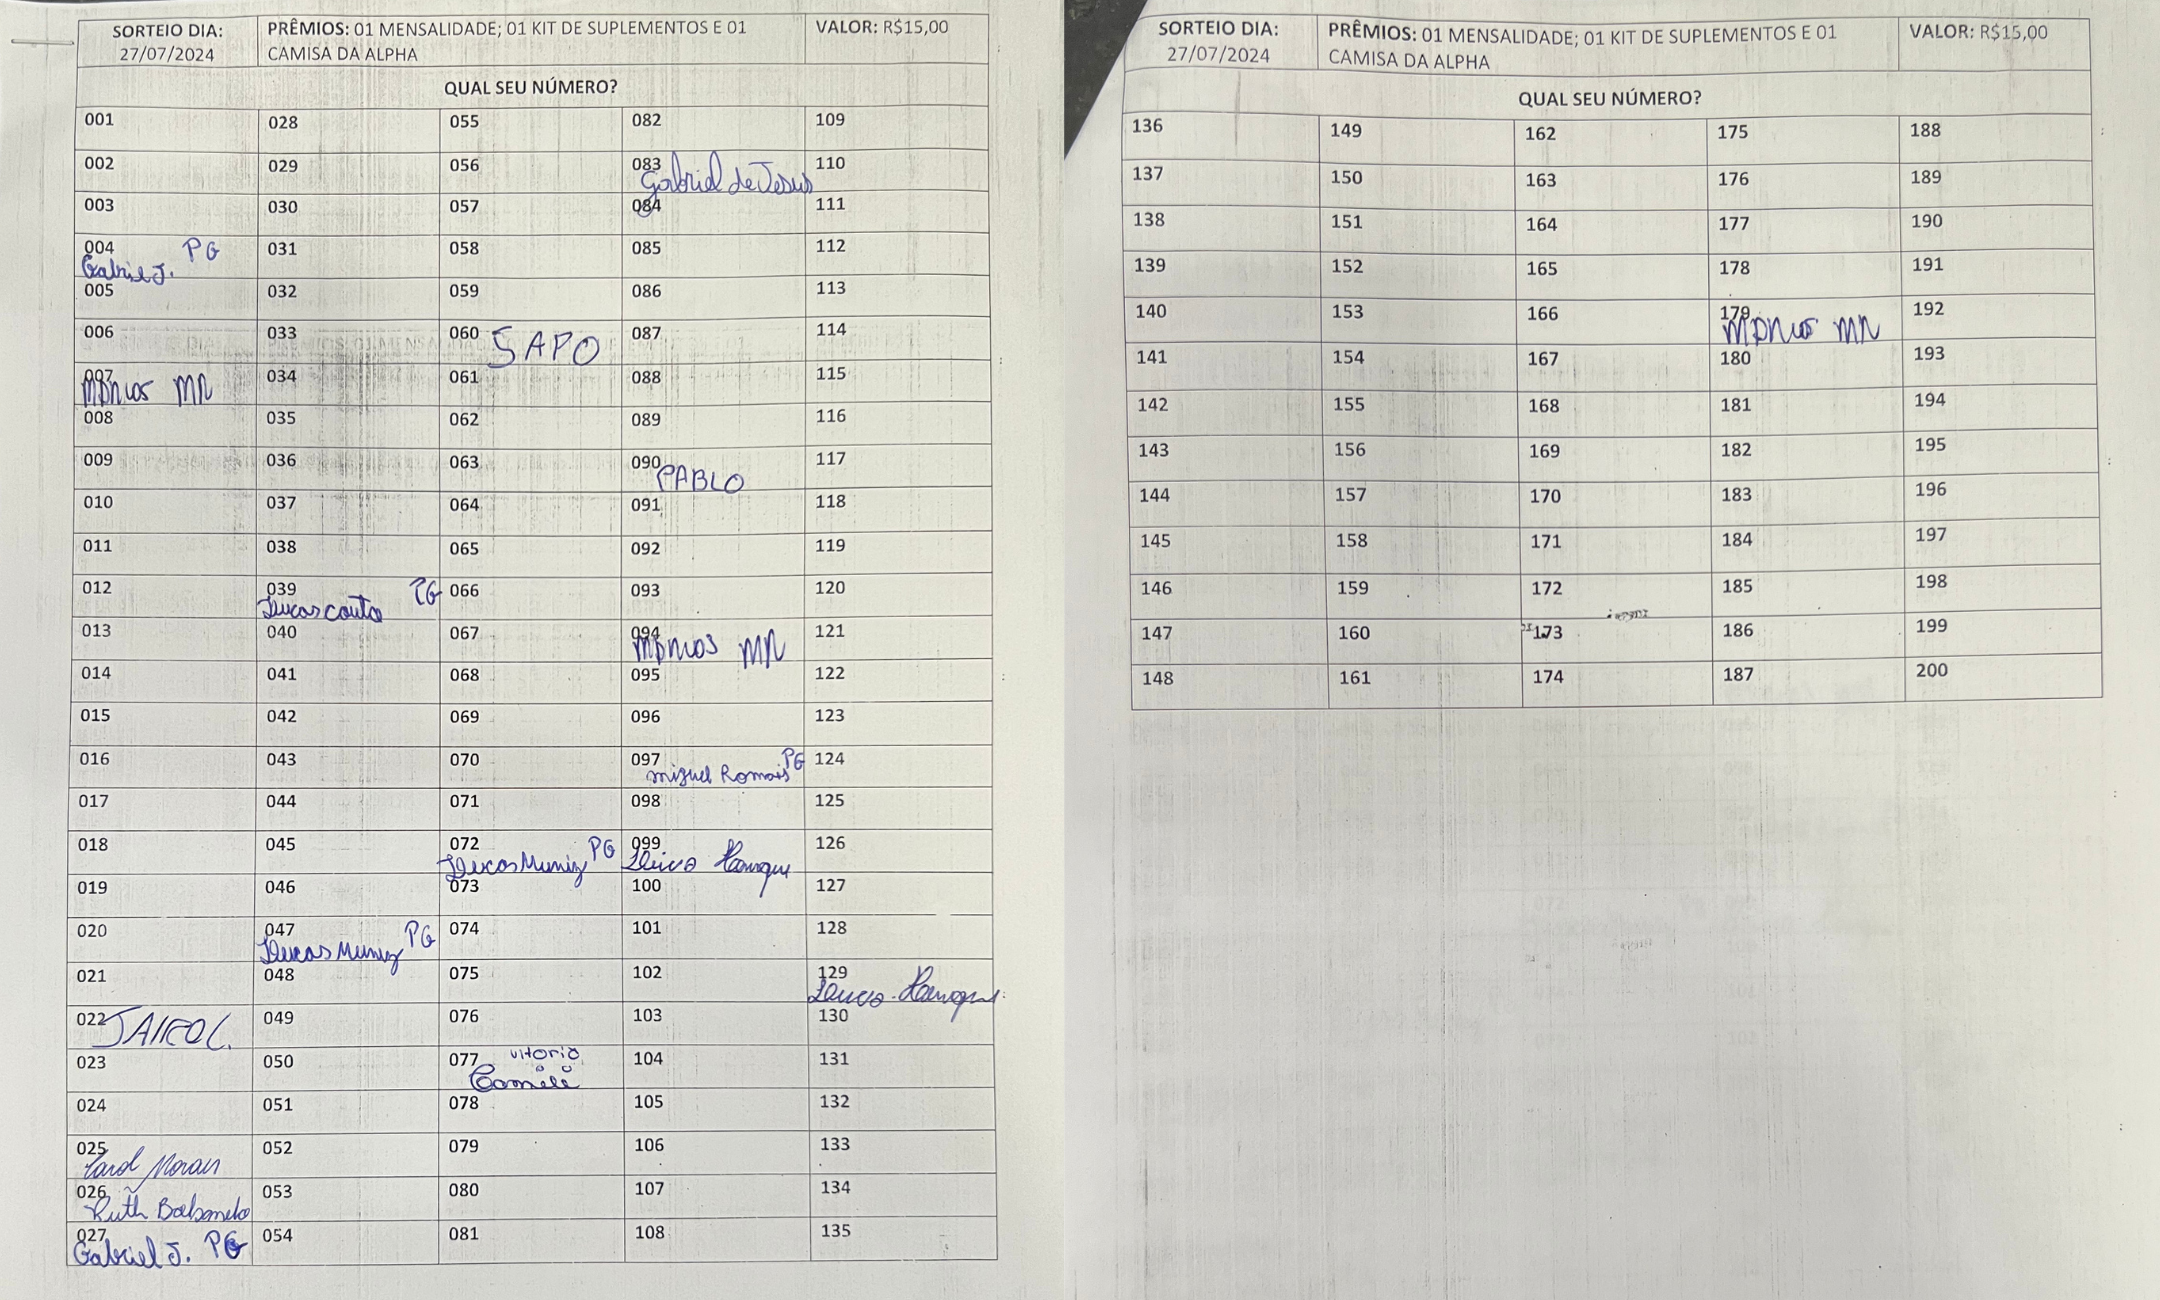 SORTEIO DIA: 27/07/2024 PRÊMIOS: 01 MENSALIDADE; 01 KIT DE SUPLEMENTOS E 01 CAMISA DA ALPHA VALOR: R$15,00
QUAL SEU NÚMERO?
001 028 055 082 109
002 029 056 083 Gabriel de Jesus 110
003 030 057 084 111
004 Gabriel J. PG 031 058 085 112
005 032 059 086 113
006 033 060 SAPO 087 114
007 034 061 088 115
008 035 062 089 116
009 036 063 090 PABLO 117
010 037 064 091 118
011 038 065 092 119
012 039 Lucas couto PG 066 093 120
013 040 067 094 121
014 041 068 095 122
015 042 069 096 123
016 043 070 097 miguel Romais PG 124
017 044 071 098 125
018 045 072 Lucas Muniz PG 099 126
019 046 073 100 127
020 047 Lucas Muniz PG 074 101 128
021 048 075 102 129
022 049 076 103 130
023 050 077 104 131
024 051 078 105 132
025 Carol Morais 052 079 106 133
026 Ruth 053 080 107 134
027 Gabriel J. PG 054 081 108 135
SORTEIO DIA: 27/07/2024 PRÊMIOS: 01 MENSALIDADE; 01 KIT DE SUPLEMENTOS E 01 CAMISA DA ALPHA VALOR: R$15,00
QUAL SEU NÚMERO?
136 149 162 175 188
137 150 163 176 189
138 151 164 177 190
139 152 165 178 191
140 153 166 179 192
141 154 167 180 193
142 155 168 181 194
143 156 169 182 195
144 157 170 183 196
145 158 171 184 197
146 159 172 185 198
147 160 173 186 199
148 161 174 187 200